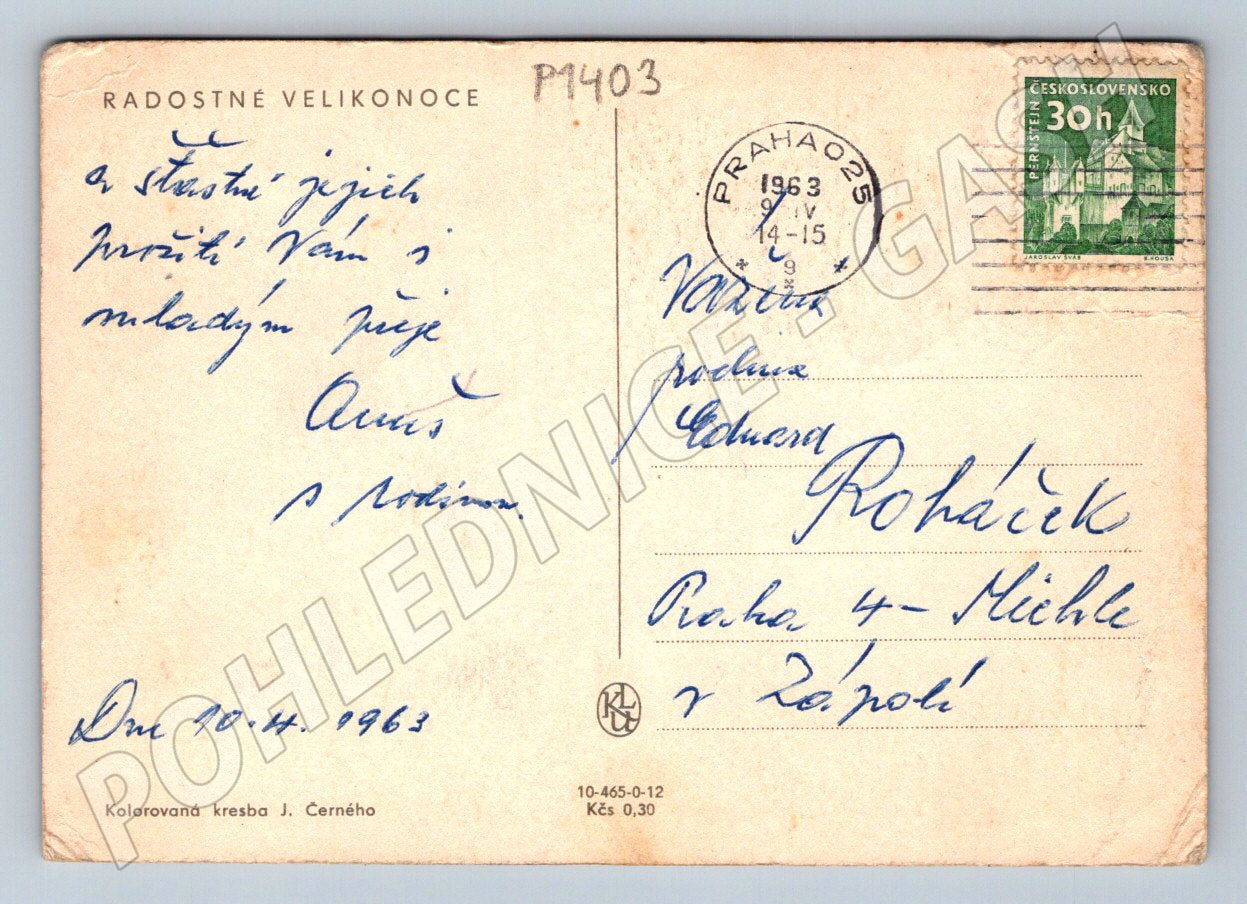 P1403
RADOSTNÉ VELIKONOCE
a šťastné jejich
prožití Vám i
mladým přeje
s rodinou.
Dne 10. 4. 1963
Kolorovaná kresba J. Černého
10-465-0-12
Kčs 0,30
PRAHA 025
1963
9 IV
14-15
9
ČESKOSLOVENSKO
30h
PERNŠTEJN
JAROSLAV ŠVÁB
B. HOUSA
Vážená
rodina
Eduard
Roháček
Praha 4 - Michle
v Zápolí
POHLEDNICE - GASH